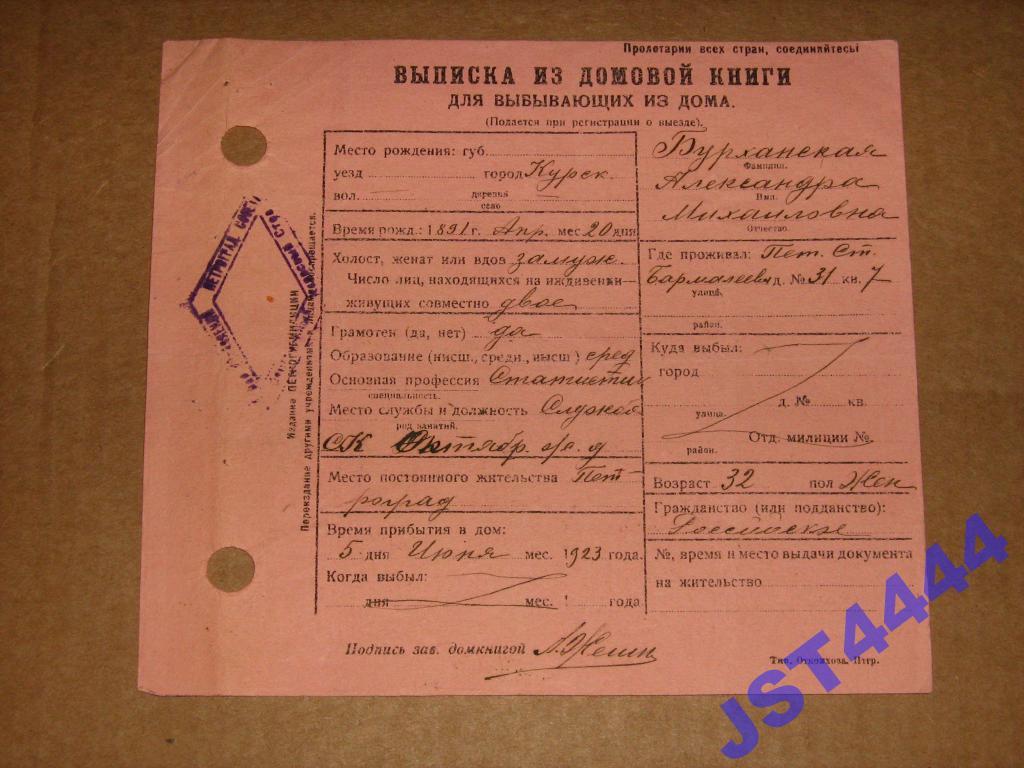 Пролетарии всех стран, соединяйтесь!
ВЫПИСКА ИЗ ДОМОВОЙ КНИГИ
ДЛЯ ВЫБЫВАЮЩИХ ИЗ ДОМА.
(Подается при регистрации о выезде).
Место рождения: губ.
уезд город Курск.
вол. деревня
село
Время рожд.: 1891 г. Апр. мес. 20 дня
Холост, женат или вдов замуж.
Число лиц, находящихся на иждивении—
живущих совместно двое
Грамотен (да, нет) да
Образование (нисш., средн., высш.) сред
Основная профессия Статистик
специальность.
Место службы и должность
род занятий.
СК Октябр. ж. д
Место постоянного жительства Пет
роград
Время прибытия в дом:
5 дня Июня мес. 1923 года.
Когда выбыл:
дня мес. 1 года
Подпись зав. домкнигой
Бурханская
Фамилия.
Александра
Имя.
Михайловна
Отчество.
Где проживал: Пет. Ст.
Бармалеева д. № 31 кв. 7
улица.
район.
Куда выбыл:
город
д. № кв.
улица.
Отд. милиции №
район.
Возраст 32 пол Жен
Гражданство (или подданство):
Российское
№, время и место выдачи документа
на жительство
Тип. Откомхоза. Птгр.
Издание ПЕТРОГУБМИЛИЦИИ
Переиздание другими учреждениями и лицами воспрещается.
ПЕТРОГРАД
JST4444